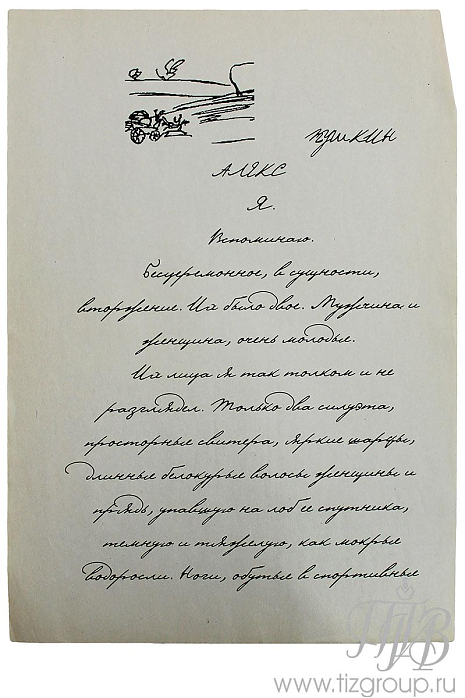 пушкин
АЛЕКС
Я.
Вспоминаю.
Бесцеремонное, в сущности,
вторжение. Их было двое. Мужчина и
женщина, очень молодые.
Их лица я так толком и не
разглядел. Только два силуэта,
просторные свитера, яркие шарфы,
длинные белокурые волосы женщины и
прядь, упавшую на лоб ее спутника,
темную и тяжелую, как мокрые
водоросли. Ноги, обутые в спортивные
www.tizgroup.ru